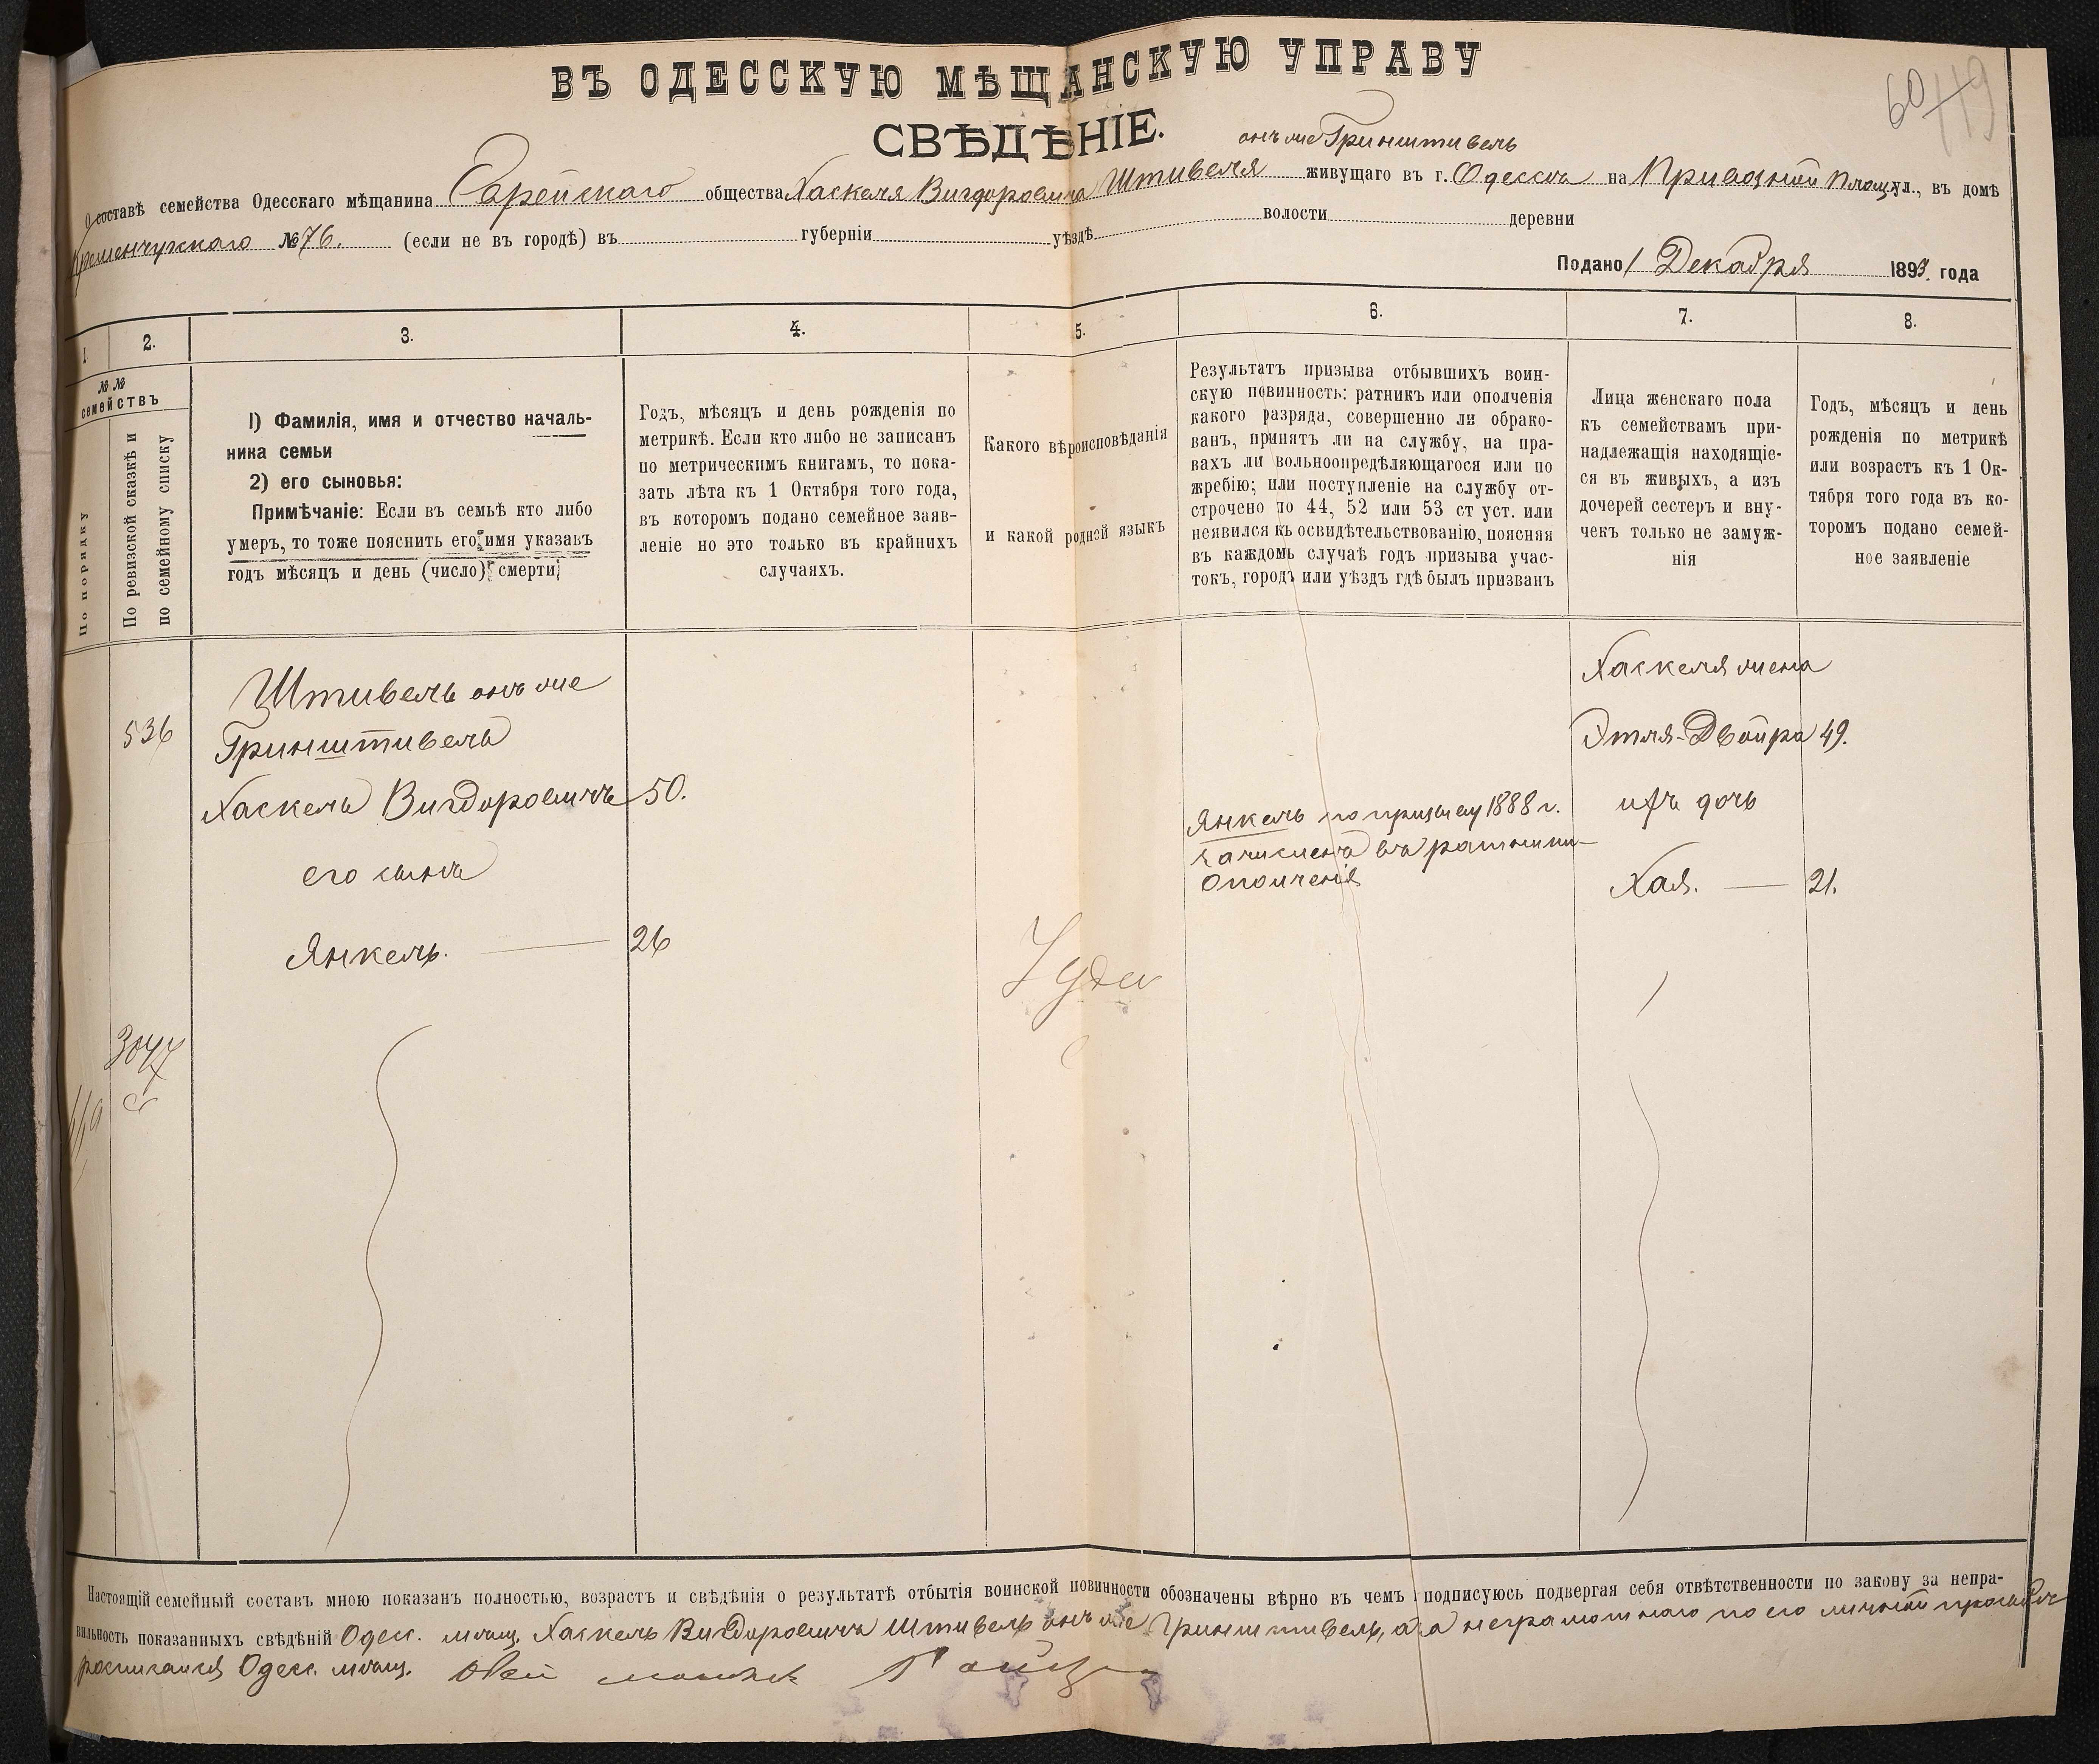 60 119
ВЪ ОДЕССКУЮ МѢЩАНСКУЮ УПРАВУ
СВѢДѢНІЕ.
онъ же Гринштивель
О составѣ семейства Одесскаго мѣщанина Еврейскаго общества Хаскеля Вигдоровича Штивеля живущаго въ г. Одессѣ на Привозной площ. ул., въ домѣ
Кременчугскаго № 76. (если не въ городѣ) въ губерніи уѣздѣ волости деревни
Подано 1 Декабря 1893. года
1 2. 3. 4. 5. 6. 7. 8.
№ №
семействъ
По порядку
По ревизской сказкѣ и
по семейному списку
1) Фамилія, имя и отчество началь-
ника семьи
2) его сыновья:
Примѣчаніе: Если въ семьѣ кто либо
умеръ, то тоже пояснить его имя указавъ
годъ мѣсяцъ и день (число) смерти
Годъ, мѣсяцъ и день рожденія по
метрикѣ. Если кто либо не записанъ
по метрическимъ книгамъ, то пока-
зать лѣта къ 1 Октября того года,
въ которомъ подано семейное заяв-
леніе но это только въ крайнихъ
случаяхъ.
Какого вѣроисповѣданія
и какой родней языкъ
Результатъ призыва отбывшихъ воин-
скую повинность: ратникъ или ополченія
какого разряда, совершенно ли обрако-
ванъ, принятъ ли на службу, на пра-
вахъ ли вольноопредѣляющагося или по
жребію; или поступленіе на службу от-
строчено по 44, 52 или 53 ст уст. или
неявился къ освидѣтельствованію, поясняя
въ каждомъ случаѣ годъ призыва учас-
токъ, городъ или уѣздъ гдѣ былъ призванъ
Лица женскаго пола
къ семействамъ при-
надлежащія находящіе-
ся въ живыхъ, а изъ
дочерей сестеръ и вну-
чекъ только не замуж-
нія
Годъ, мѣсяцъ и день
рожденія по метрикѣ
или возрастъ къ 1 Ок-
тября того года въ ко-
торомъ подано семей-
ное заявленіе
536
Штивель онъ же
Гринштивель
Хаскель Вигдоровичъ 50.
его сынъ
Янкель. 26
3047
119
Іуд
Янкель по призыву 1888 г.
зачисленъ въ ратники
ополченія
Хаскеля жена
Этля-Двойра 49.
ихъ дочь
Хая. 21.
Настоящій семейный составъ мною показанъ полностью, возрастъ и свѣдѣнія о результатѣ отбытія воинской повинности обозначены вѣрно въ чемъ подписуюсь подвергая себя отвѣтственности по закону за непра-
вильность показанныхъ свѣдѣній Одес. мѣщ. Хаскель Вигдоровичъ Штивель онъ же Гринштивель, а за неграмотнаго по его личной просьбѣ
росписался Одес. мѣщ.